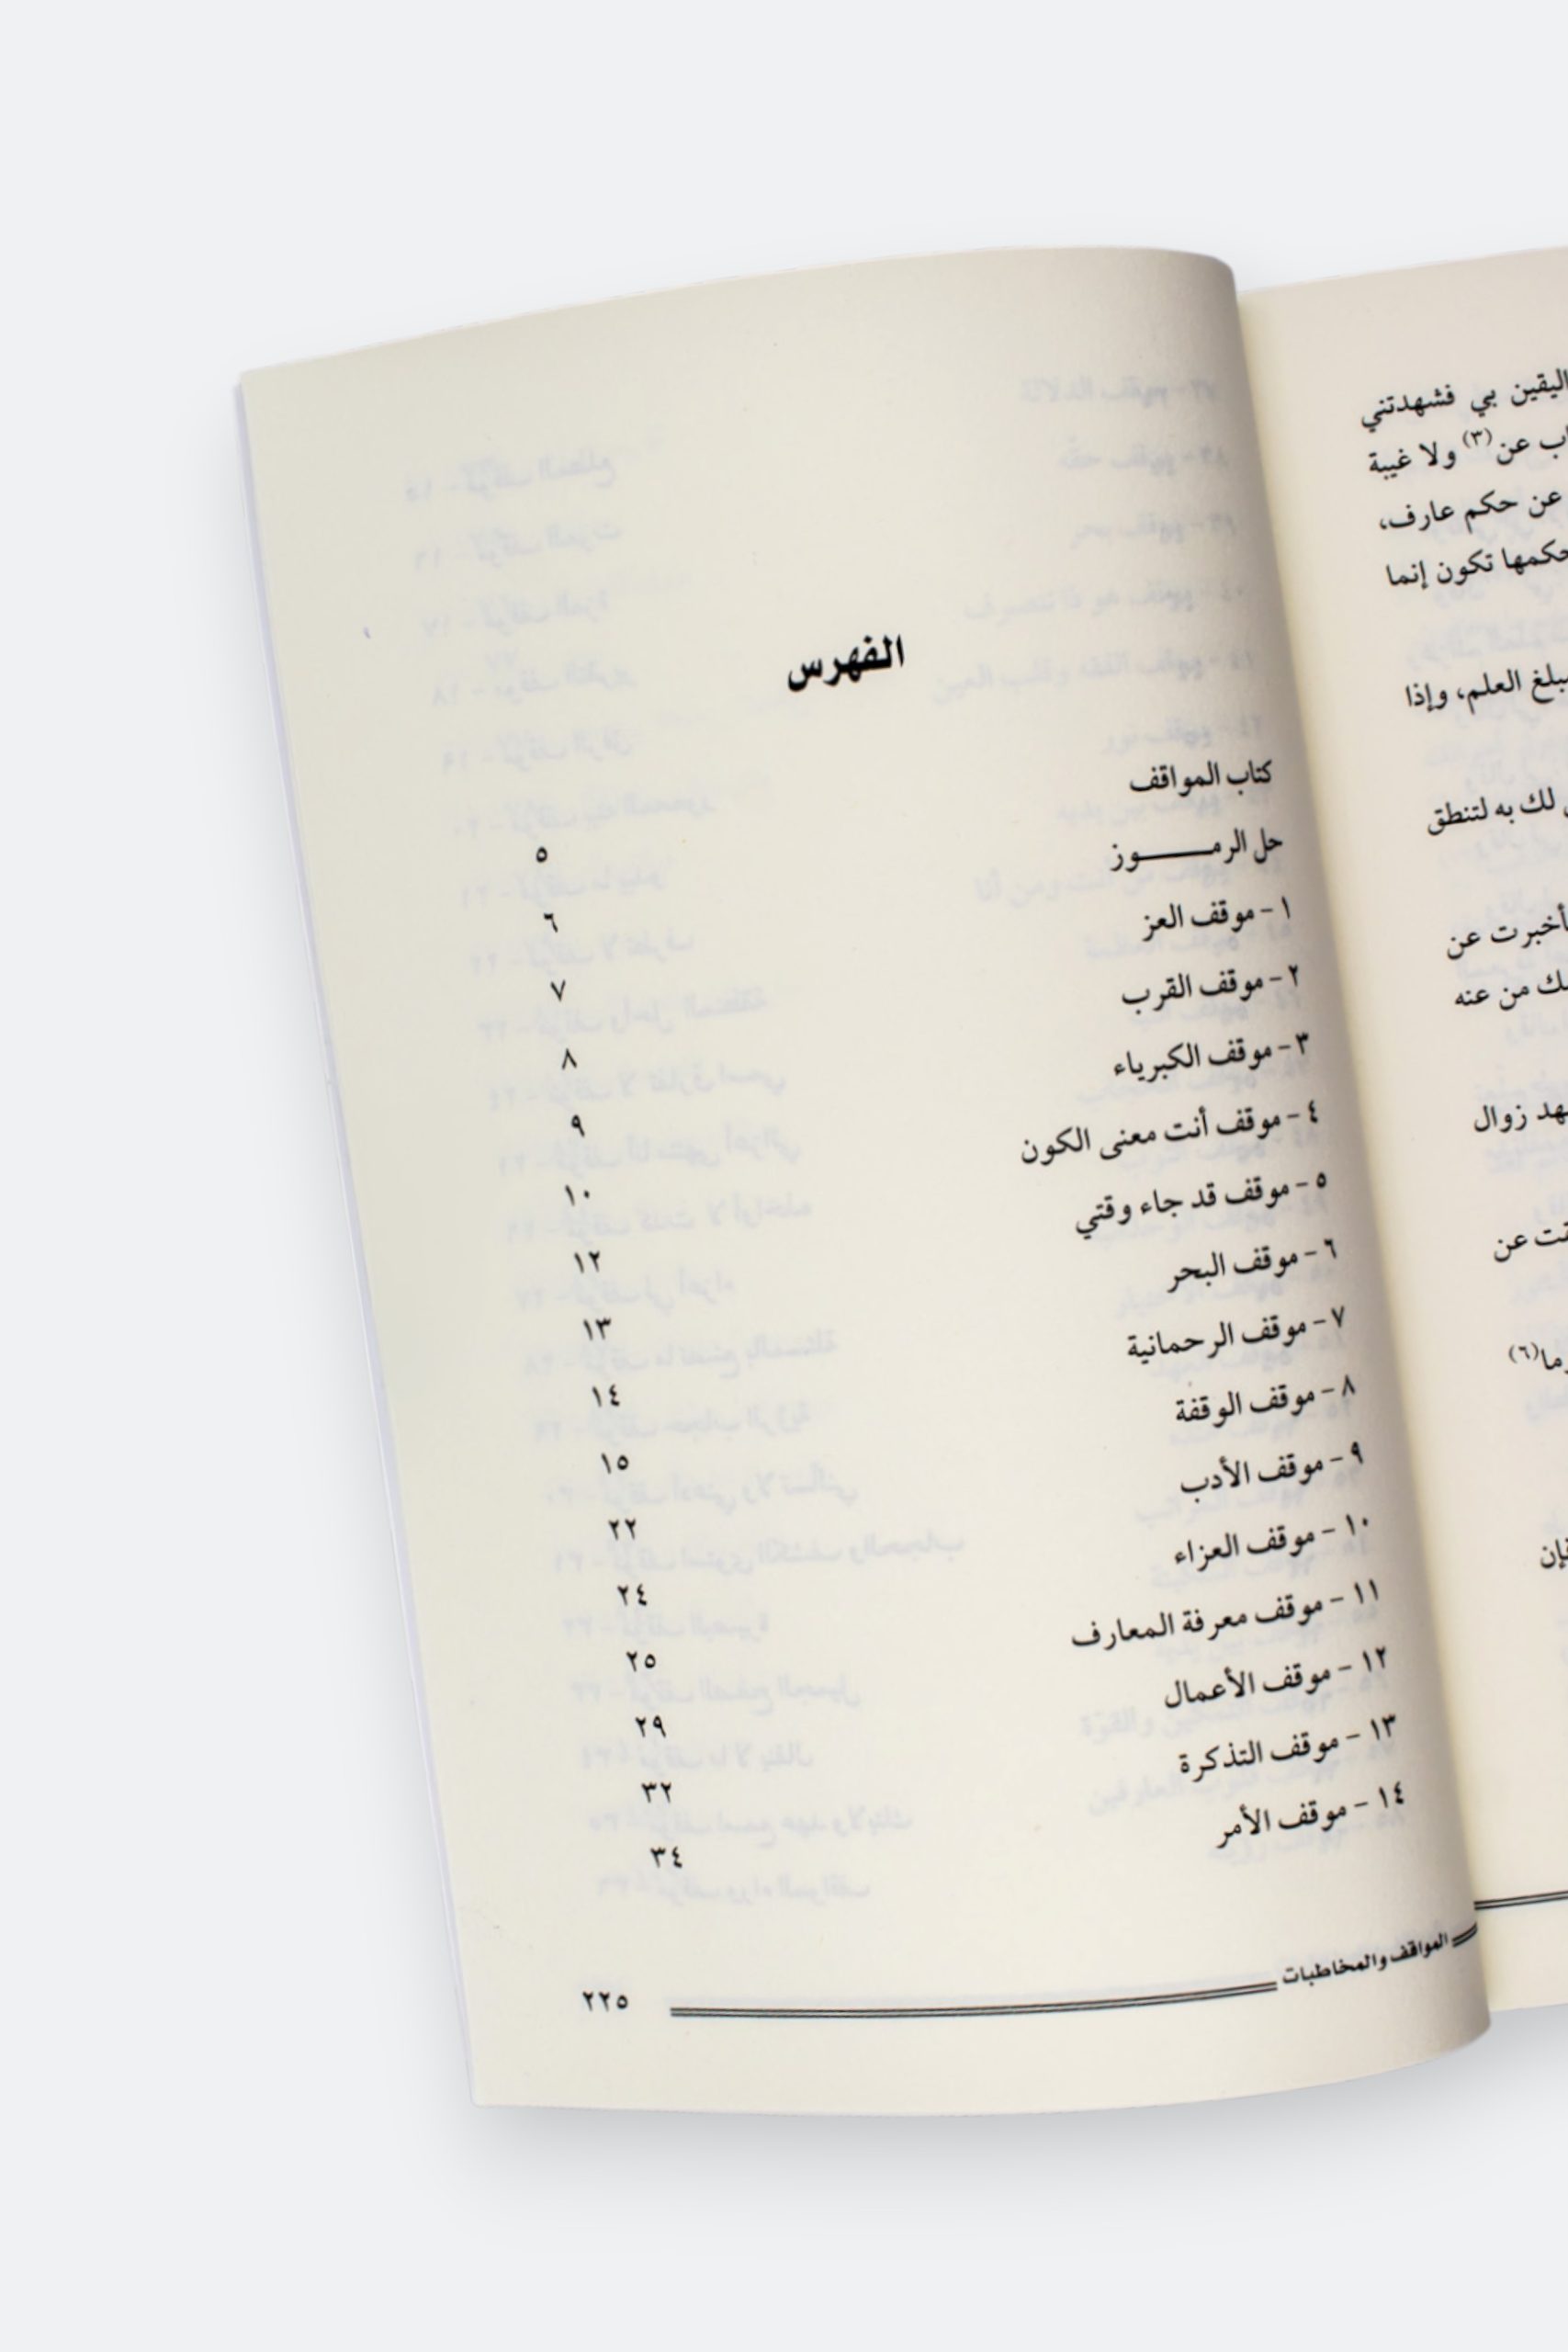 اليقين بي فشهدتني
عن(٣) ولا غيبة
عن حكم عارف،
حكمها تكون إنما
العلم، وإذا
لك به لتنطق
عن
من عنه
زوال
عن
الفهرس
كتاب المواقف ٥
حل الرمـــــوز ٦
١ - موقف العز ٧
٢ - موقف القرب ٨
٣ - موقف الكبرياء ٩
٤ - موقف أنت معنى الكون ١٠
٥ - موقف قد جاء وقتي ١٢
٦ - موقف البحر ١٣
٧ - موقف الرحمانية ١٤
٨ - موقف الوقفة ١٥
٩ - موقف الأدب ٢٢
١٠ - موقف العزاء ٢٤
١١ - موقف معرفة المعارف ٢٥
١٢ - موقف الأعمال ٢٩
١٣ - موقف التذكرة ٣٢
١٤ - موقف الأمر ٣٤
المواقف والمخاطبات ٢٢٥